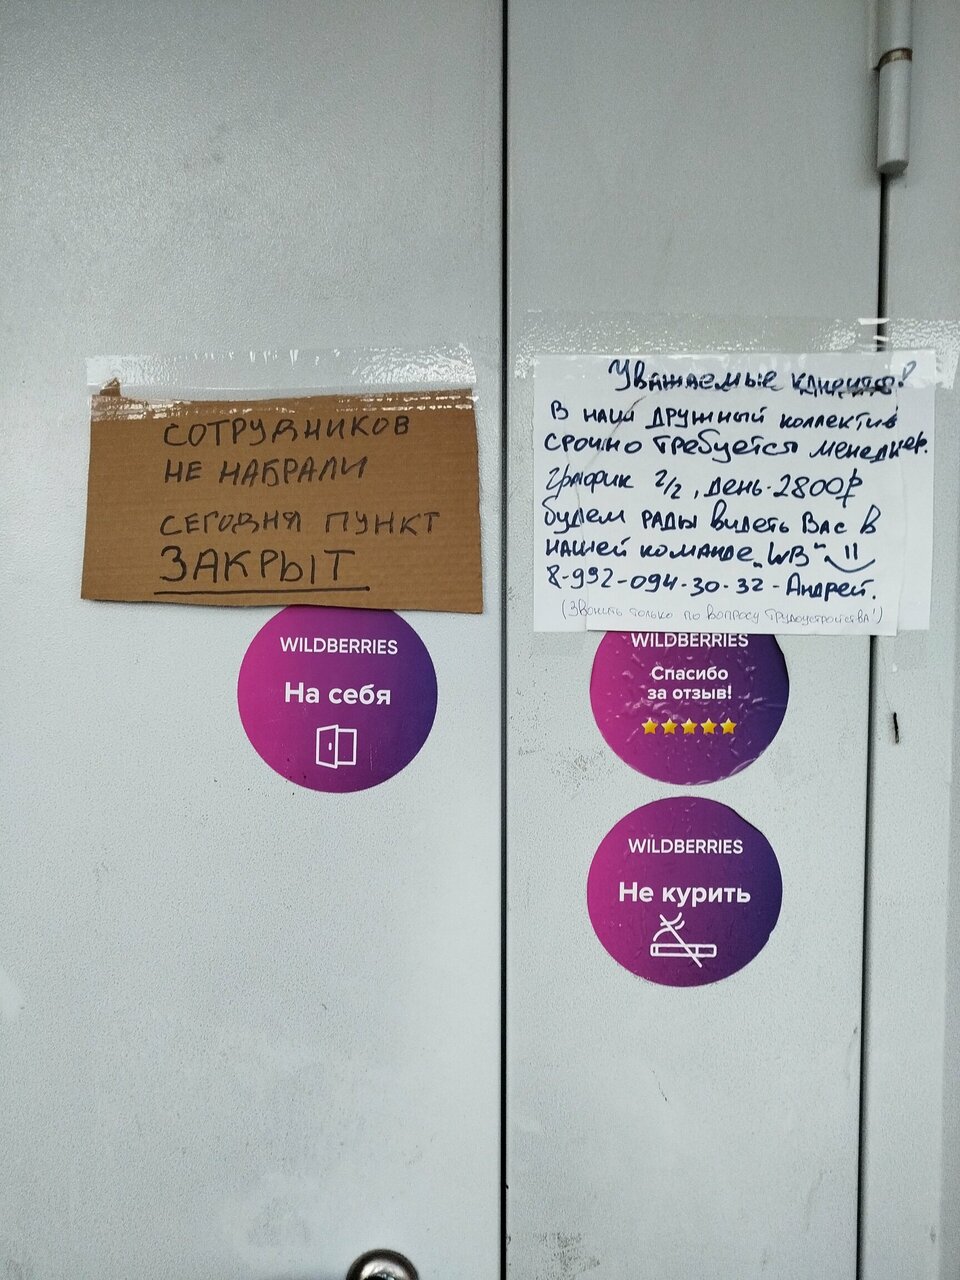 СОТРУДНИКОВ
НЕ НАБРАЛИ
СЕГОДНЯ ПУНКТ
ЗАКРЫТ
WILDBERRIES
На себя
Уважаемые клиенты!
В наш дружный коллектив
срочно требуется менеджер.
График 2/2, день-2800₽
будем рады видеть Вас в
нашей команде „WB"
8-992-094-30-32-Андрей.
(Звонить только по вопросу трудоустройства!)
WILDBERRIES
Спасибо
за отзыв!
WILDBERRIES
Не курить